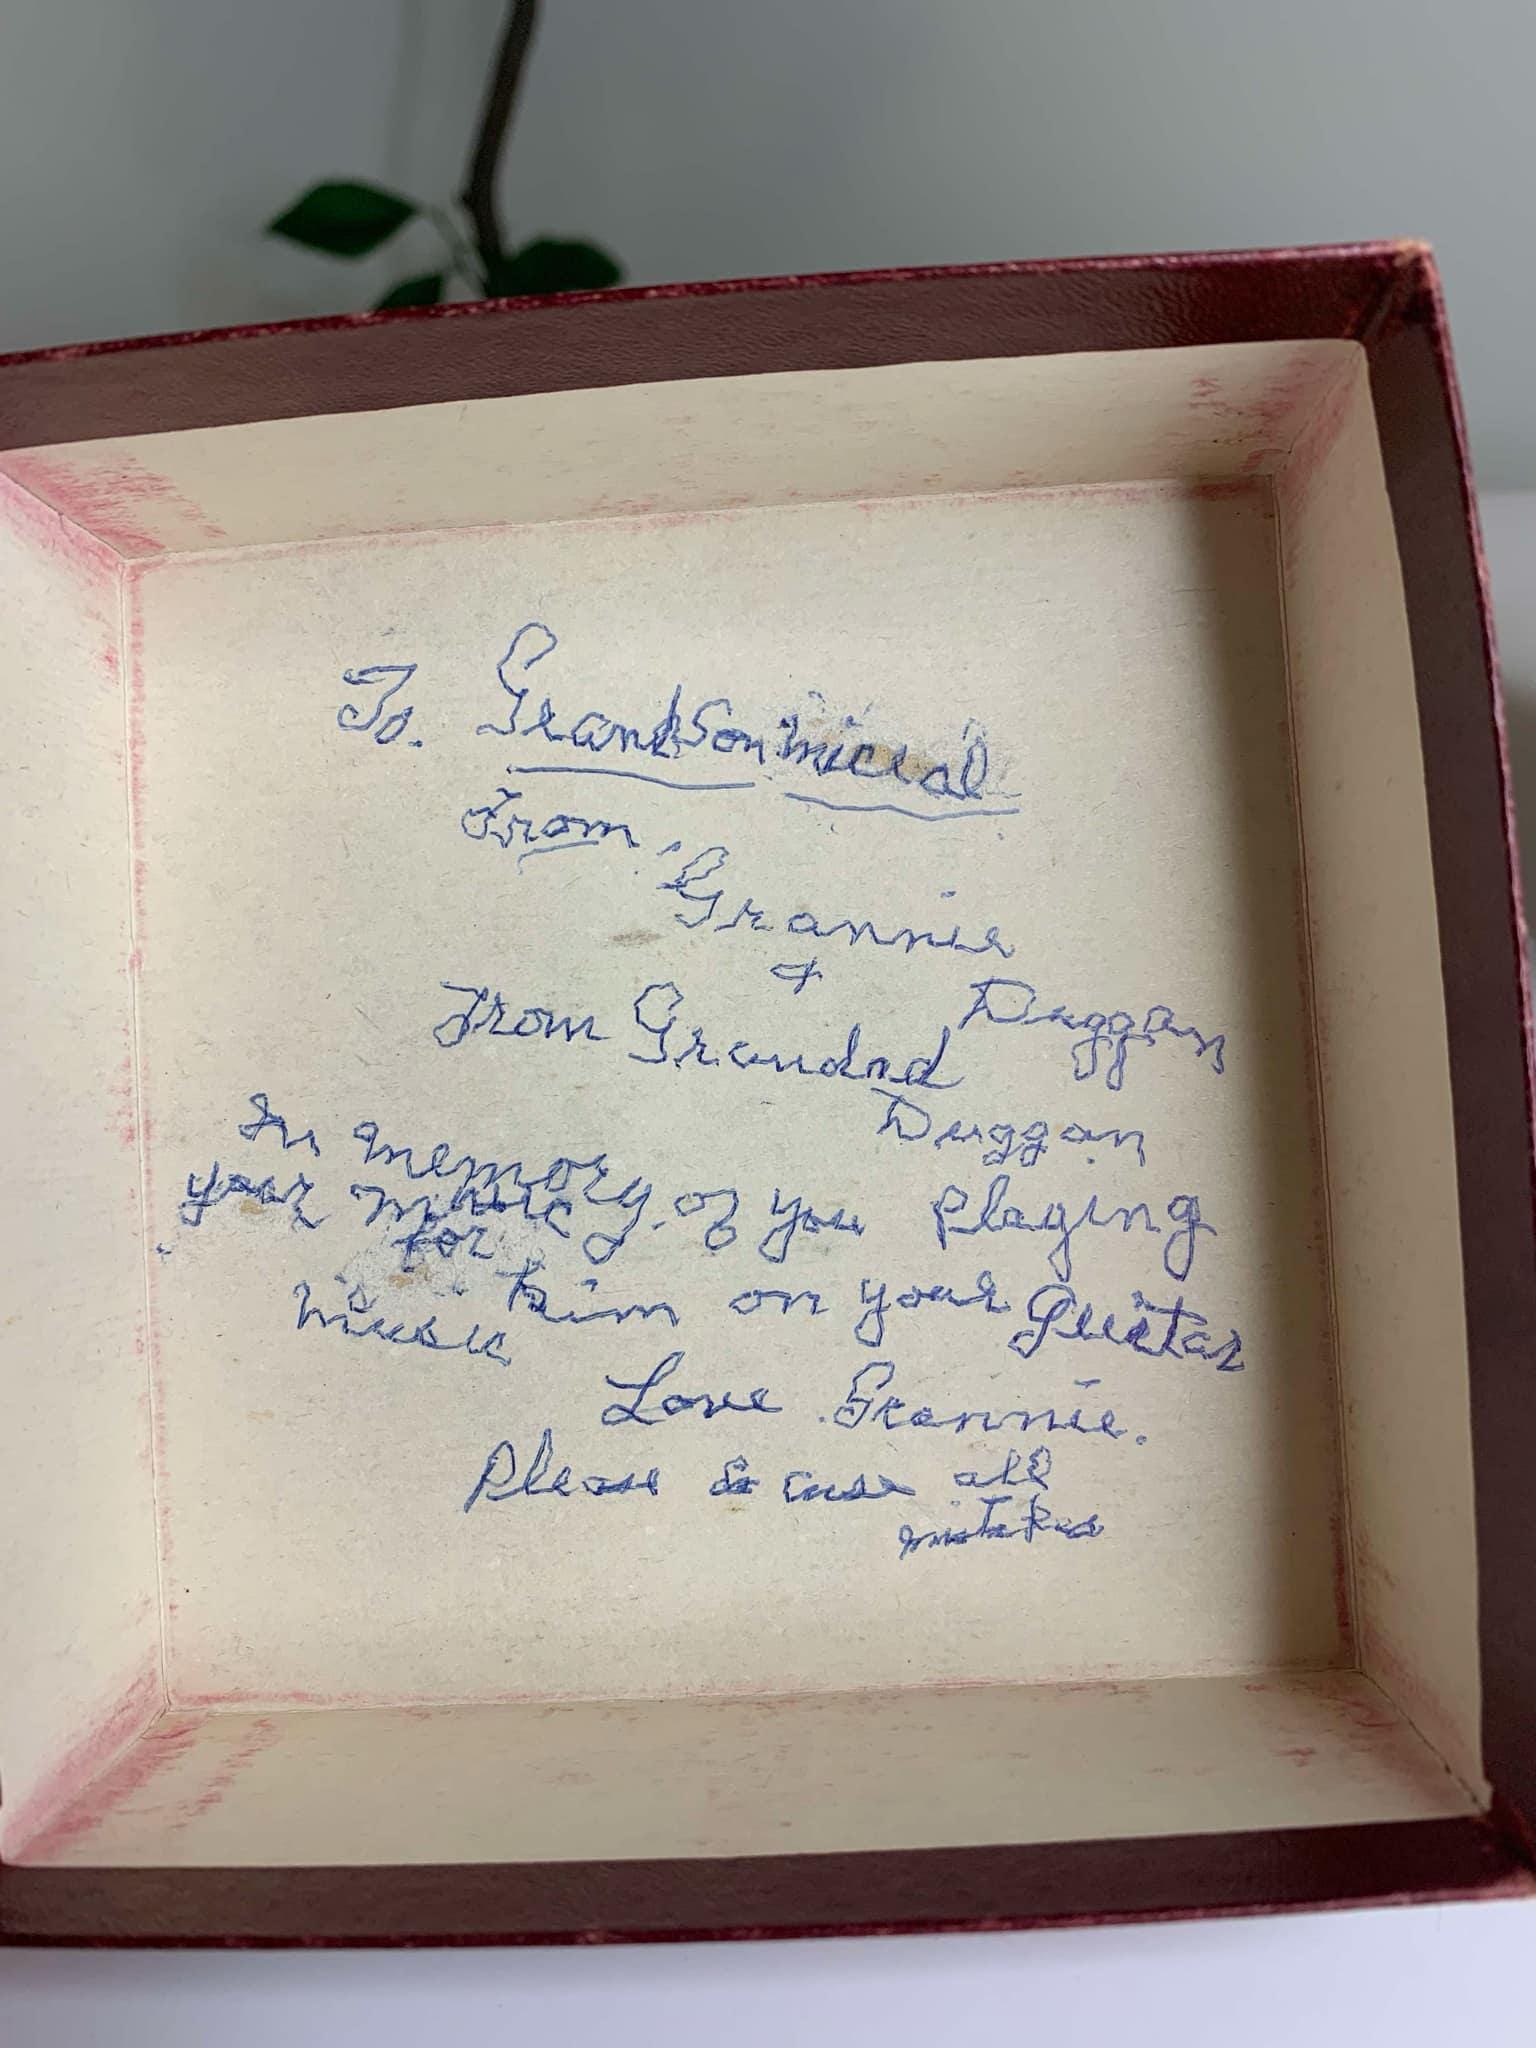 To. GrandSon miceal
From. Grannie
& Duggan
From Grandad
Duggan
In memory. of you Playing
your music
for him on your Guitar
music
Love Grannie.
Please Excuse all
mistakes